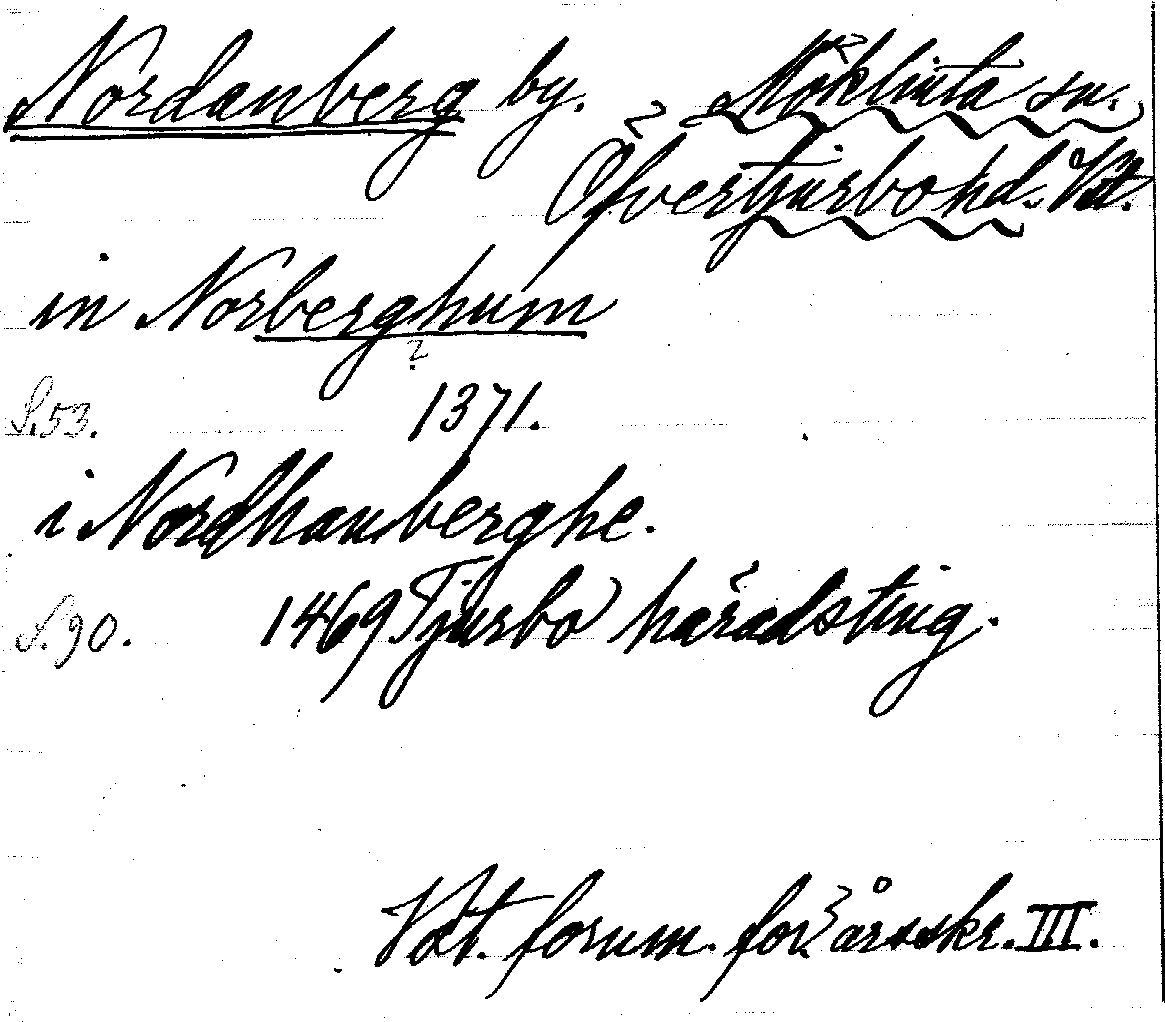 Nordanberg by. Möklinta sn.
Öfvertjurbo hd. Vst.
in Norberghum
?
S.53. 1371.
i Nordhanberghe.
S.90. 1469 Tjurbo häradsting.
Vst. fornm. för. årsskr. III.